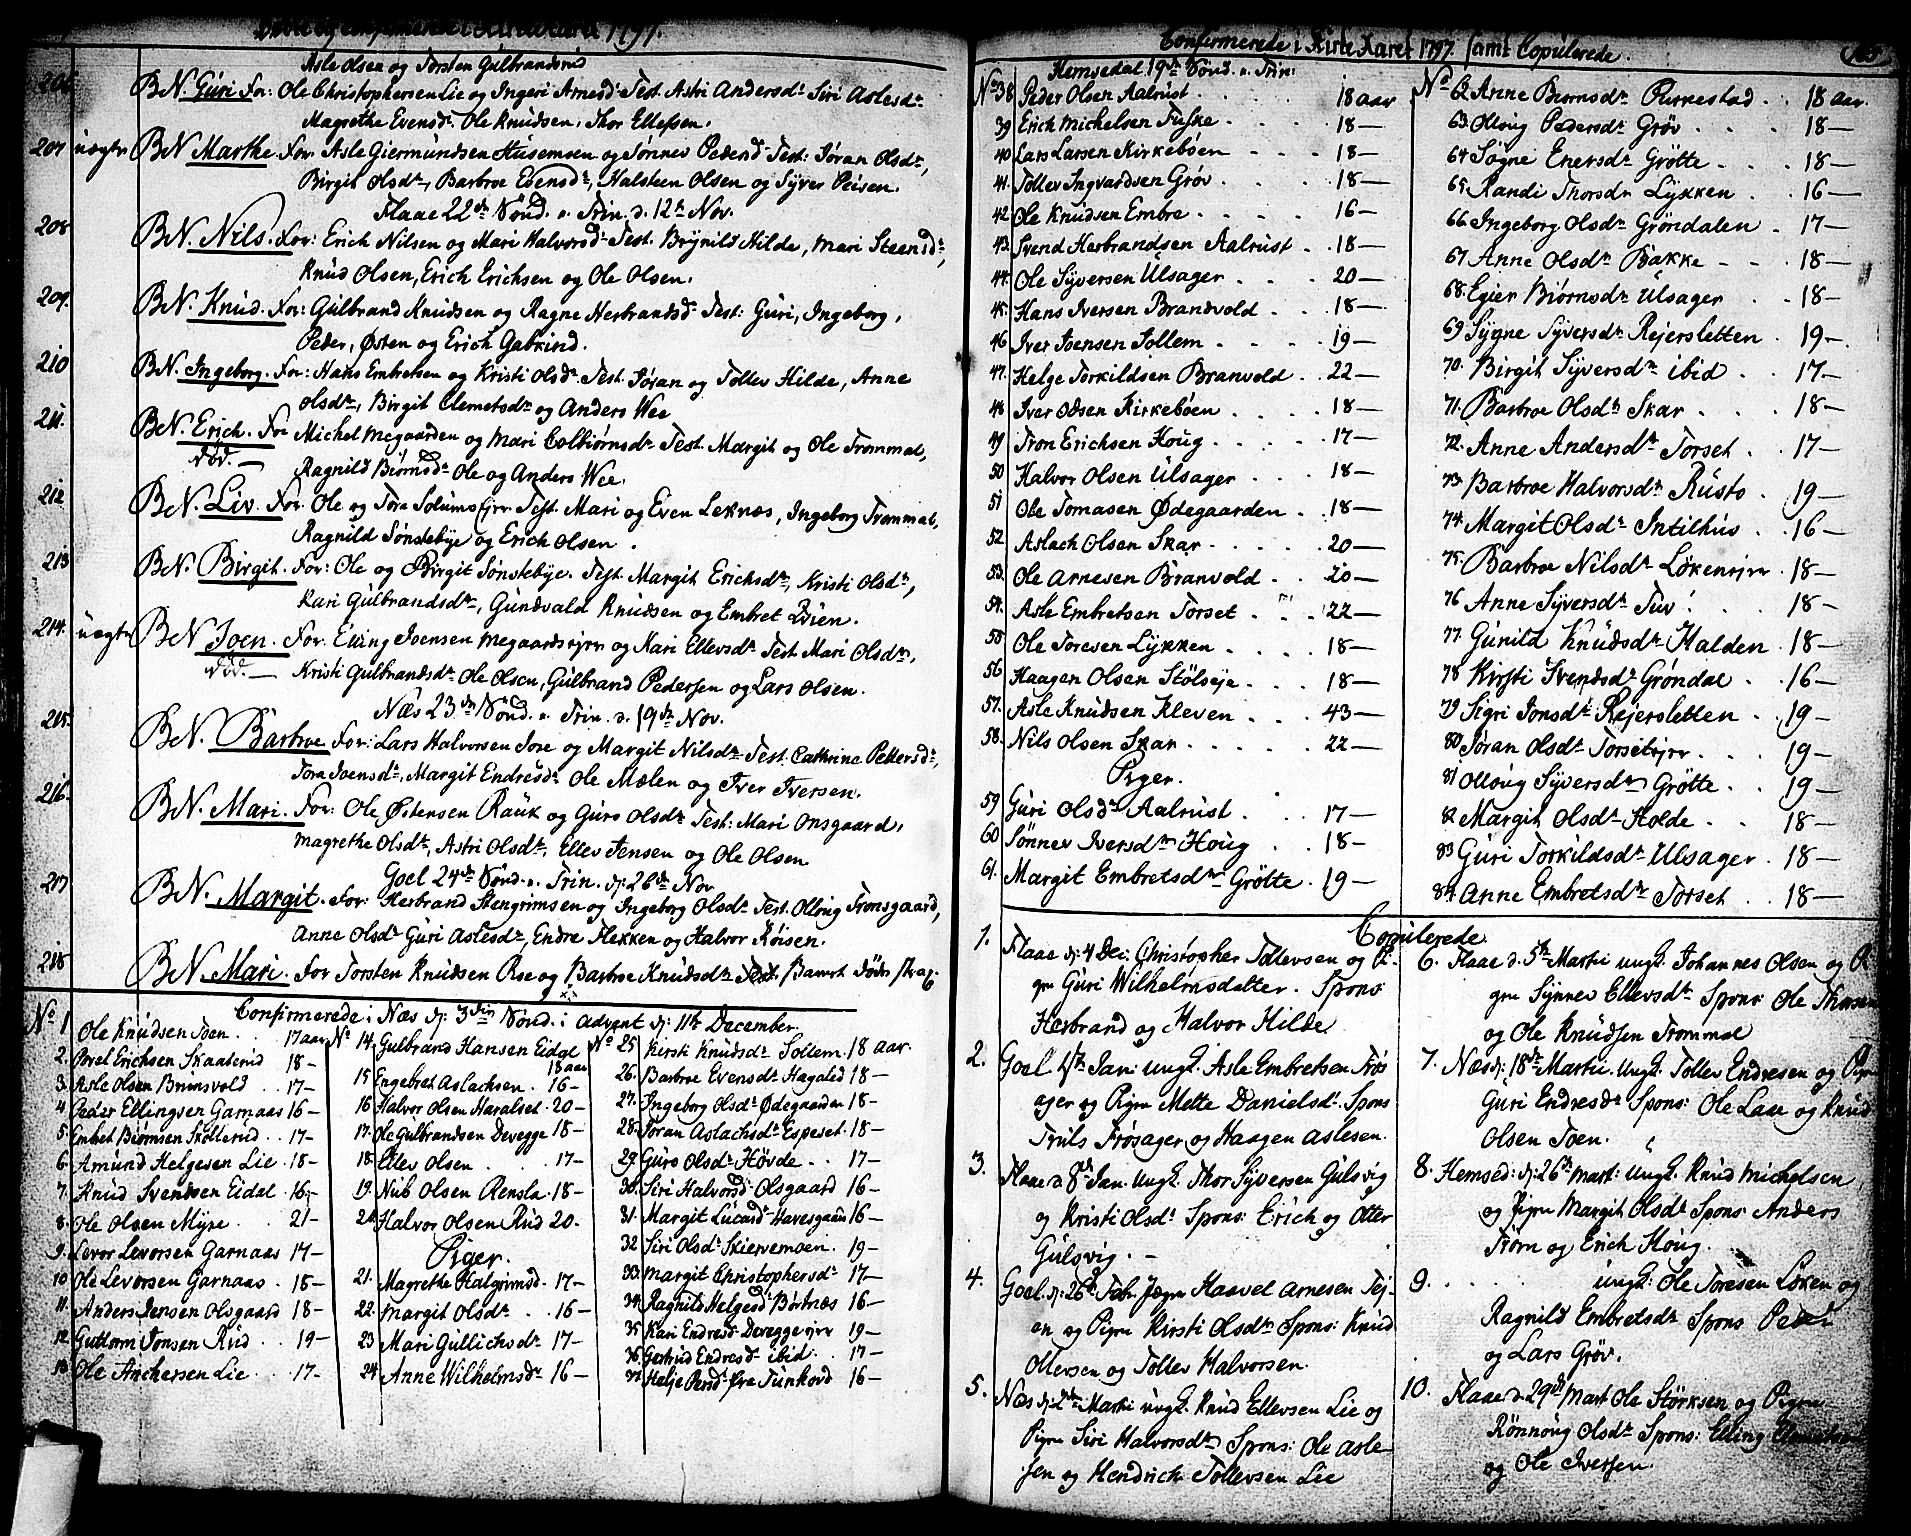 Døbte og Confirmerede i Kirke Aaret 1797.
Asle Olsen og Torsten Gulbrandsrud
206 BN. Guri For: Ole Christophersen Lie og Ingeri Arnesdr Test. Astri Andersdr Siri Aslesdr
Magrethe Evensdr Ole Knudsen, Thor Ellefsen.
207 uægte BN Marthe For Asle Giermundsen Husemsen og Sønnev Pedersdr Test: Jøran Olsdr,
Birgit Olsdr, Barbroe Evensdr, Halsteen Olsen og Syver Peisen.
Flaae 22de Sønd. n. Trin. d. 12te Nov.
208 BN. Nils. For: Erich Nilsen og Mari Halvorsdr Test. Brynild Hilde, Mari Steensdr,
Knud Olsen, Erich Erichsen og Ole Olsen.
209. BN. Knud. For: Gulbrand Knudsen og Ragne Herbrandsdr Test: Guri, Ingeborg,
Peder, Østen og Erich Gabrind.
210 BN. Ingeborg. For: Hans Embretsen og Kristi Olsdr Test. Jøran og Tollev Hilde, Anne
Olsdr, Birgit Clemetsdr og Anders Wee
211. BN. Erich. For Michel Megaarden og Mari Colbiørnsdr Test. Margit og Ole Trommal,
død. — Ragnild Biørnsdr Ole og Anders Wee.
212 BN. Liv. For Ole og Tora Solumsejer Test. Mari og Even Leknæs, Ingeborg Trommal,
Ragnild Sønstebye og Erich Olsen.
213 BN. Birgit. For: Ole og Birgit Sønstebye. Test. Margit Erichsdr, Kristi Olsdr,
Kari Gulbrandsdr, Gundvald Knudsen og Embret Qvien.
214. uægte BN Joen. For: Elling Joensen Megaardsejer og Kari Ellevsdr Test Mari Olsdr,
død. — Kristi Gulbrandsdr Ole Olsen, Gulbrand Pedersen og Lars Olsen.
Næs 23de Sønd. n. Trin. d. 19de Nov.
215. BN. Barbroe For: Lars Halvorsen Jore og Margit Nilsdr Test. Cathrine Pettersdr,
Tora Joensdr, Margit Endresdr Ole Mælen og Iver Iversen.
216. BN. Mari. For: Ole Østensen Rauk og Guro Olsdr Test: Mari Onsgaard,
Magrethe Olsdr, Astri Olsdr, Ellev Jensen og Ole Olsen
Goel 24de Sønd. n. Trin. d: 26de Nov
217 BN. Margit. For: Herbrand Stengrimsen og Ingeborg Olsdr Test. Olloug Tronsgaard,
Anne Olsdr Guri Aslesdr, Endre Flekken og Halvor Røisen.
218 BN. Mari. For Torsten Knudsen Rse og Barbroe Knudsdr
Confirmerede i Næs d: 3die Sønd. i Advent d: 11te December.
No 1 Ole Knudsen Toen. 17 aar
2. Arvel Erichsen Skaaterud 18 —
3. Asle Olsen Brunsvold . . 17 —
4 Peder Ellingsen Garnaas 16 —
5. Embret Biørnsen Skolterud . 17 —
6 Amund Helgesen Lie . 18 —
7. Knud Svendsen Eidal . 16, —
8. Ole Olsen Myre . . 21 —
9. Levor Levorsen Garnaas 17 —
10 Ole Levorsen Garnaas . 18 —
11. Anders Jensen Olsgaard 18 —
12. Guttorm Jonsen Rud . . 19 —
13. Ole Anchersen Lie . . 17. —
No 14. Gulbrand Hansen Eidal 18 aar
15 Engebret Aslachsen . 16 —
16 Halvor Olsen Haralset 20 —
17. Ole Gulbrandsen Devegge 18 —
18. Ellev Olsen . . . 17 —
19. Nub Olsen Rensla . 18 —
20 Halvor Olsen Rud 20.
Piger.
21. Magrethe Halgrimsd . 17 —
22. Margit Olsdr . . 16 —
23 Mari Gullichsdr . 17 —
24 Anne Wilhelmsdr 16 —
No 25 Kirsti Knudsdr Sollem. 18 aar.
26. Barbroe Evensdr Hagaled 18 —
27. Ingeborg Olsdr Ødegaarden 18 —
28. Jøran Aslachsdr Espeset. 18 —
29. Guro Olsdr Høvde . . 17 —
30. Siri Halvorsdr Olsgaard 16 —
31. Margit Lucasdr Havesgaard 16 —
32 Siri Olsdr Skiervemoen . 19 —
33. Margit Christophersdr 17 —
34. Ragnild Helgesdr Børtnæs 16 —
35 Kari Endresdr Devegge ejer 19 —
36. Gertrud Endresdr ibid . 17 —
37. Helje Persdr fra Tunhovd 16 —
Confirmerede i Kirke Aaret 1797. samt Copulerede.
Hemsedal 19de Sønd. n. Trin:
No 38 Peder Olsen Aalrust . . 18 aar
39 Erich Michelsen Fuske . . . 18 —
40 Lars Larsen Kirkebøen . . . 18 —
41. Tollev Ingvardsen Grøv . . . 18 —
42. Ole Knudsen Embre . . . . 16 —
43. Svend Herbrandsen Aalrust . 18 —
44. Ole Syversen Ulsager . . . 20 —
45. Hans Iversen Brandvold . . 18 —
46 Iver Joensen Tollem . . . 19 —
47. Helge Torkildsen Branvold . . 22 —
48 Iver Odsen Kirkebøen . . . . 18 —
49 Tron Erichsen Houg . . . . 17 —
50 Halvor Olsen Ulsager . . . 18 —
51 Ole Tomasen Ødegaarden . . 18 —
52 Aslach Olsen Skar . . . . 20 —
53. Ole Arnesen Branvold . . 20 —
54. Asle Embretsen Torset . . . 22 —
55 Ole Toresen Lykken . . . . 18 —
56 Haagen Olsen Stølseje . . . 18 —
57. Asle Knudsen Kleven . . . 43 —
58. Nils Olsen Skar . . . . . 22 —
Piger.
59 Guri Olsdr Aalrust . . . 17 —
60 Sønnev Iversdr Houg . . 18 —
61. Margit Embretsdr Grøtte . 19 —
No 62 Anne Biørnsdr Purkestad . . 18 aar.
63. Olloug Pedersdr Grøv . . . 18 —
64 Søgne Enersdr Grøtte . . . 18 —
65. Randi Thorsdr Lykken . . 16 —
66. Ingeborg Olsdr Grøndalen . 17 —
67 Anne Olsdr Bakke . . . 18 —
68. Egier Biørnsdr Ulsager . . 18 —
69 Sygne Syversdr Rejersletten . 19 —
70. Birgit Syversdr ibid . . 17 —
71. Barbroe Olsdr Skar . . . 18 —
72. Anne Andersdr Torset . 17 —
73. Barbroe Halvorsdr Rusto . 19 —
74. Margit Olsdr Intilhus . 16 —
75. Barbroe Nilsdr Løkensejer . 18 —
76 Anne Syversdr Tuv . . . 18 —
77. Gunild Knudsdr Halden . 18 —
78 Kirsti Svendsdr Grøndal . 16 —
79 Sigri Jonsdr Rejersletten . 19 —
80 Jøran Olsdr Torsetejer . 19 —
81 Olloug Syversdr Grøtte . . 19 —
82 Margit Olsdr Holde . . 18 —
83 Guri Torkildsdr Ulsager . 18 —
84 Anne Embretsdr Torset . . 18 —
Copulerede
1. Flaae d: 4 Dec: Christopher Tollevsen og Pi-
gen Guri Wilhelmsdatter. Spons:
Herbrand og Halvor Hilde
2. Goel 1te Jan: ungk. Asle Embretsen Frøs
ager og Pigen Mette Danielsdr. Spons
Truls Frøsager og Haagen Aslesen.
3. Flaae d 8de Jan. ungk. Thor Syversen Gulsvig
og Kristi Olsdr Spons: Erich og Otter
Gulsvig. —
4. Goel. d: 26de Febr. Haavel Arnesen Tej-
en og Pigen Kirsti Olsdr Spons: Knud
Ollevsen og Tollev Halvorsen.
5. Næs d: 2den Martii ungk. Knud Ellevsen Lie og
Pigen Siri Halvorsdr Spons: Ole Asle-
sen og Hendrich Tollevsen Lie
6. Flaae d. 5te Martii ungk. Johannes Olsen og Pi
gen Synnev Ellevsdr Spons: Ole Thorsen
og Ole Knudsen Trommal
7. Næs d: 18de Martii. ungk. Tollev Endresen og Pigen
Guri Endresdr Spons: Ole Lae og Knud
Olsen Toen.
8. Hemsed: d: 26de Mart: ungk. Knud Michelsen
og Pigen Margit Olsdr Spons: Anders
Trøm og Erich Houg.
9. . . . . ungk: Ole Toresen Løken og
Ragnild Embretsdr Spons Peder
og Lars Grøv.
10. Flaae d. 29de Mart Ole Størksen og Pigen
Rønnoug Olsdr Spons: Elling
og Ole Iversen.